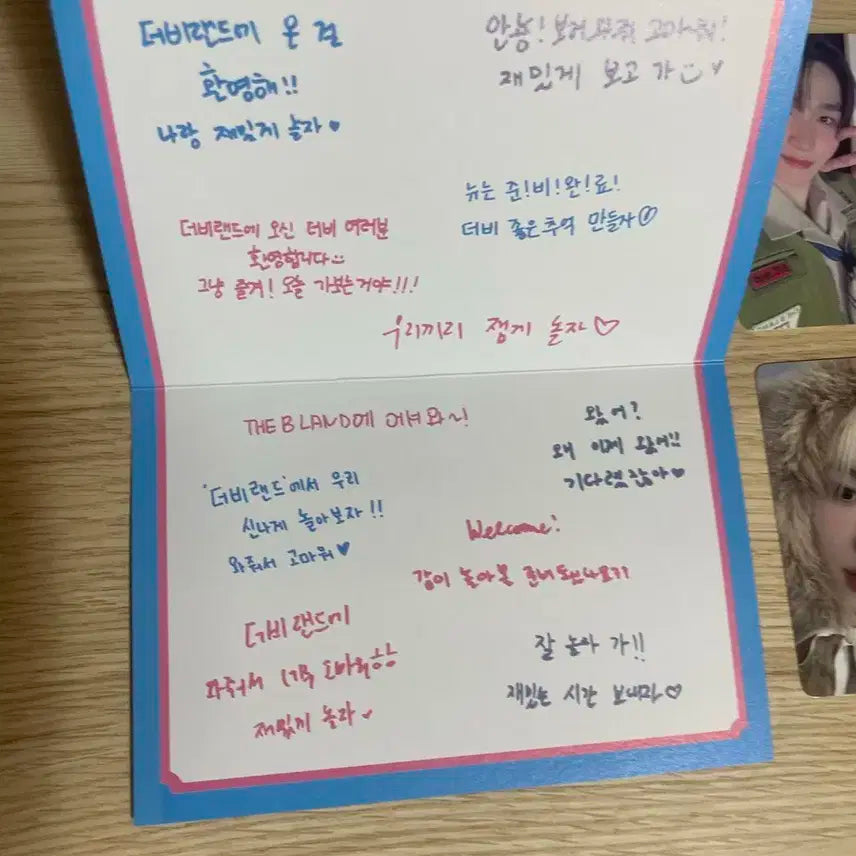 더비랜드에 온 걸
환영해!!
나랑 재밌게 놀자♥
안뇽! 보러와줘 고마워!
재밌게 보고 가 ♥
뉴는 준!비!완!료!
더비 좋은추억 만들자
더비랜드에 오신 더비 여러분
환영합니다
그냥 즐겨! 오늘 가보는거야!!!
우리끼리 잼게 놀자♡
THE B LAND에 어서와~!
왔어?
왜 이제 왔어!!
기다렸잖아♥
'더비랜드'에서 우리
신나게 놀아보자!!
와줘서 고마워♥
Welcome!
같이 놀아볼
더비랜드에
와줘서
재밌게 놀자
잘 놀아 가!!
재밌는 시간 보내라♡